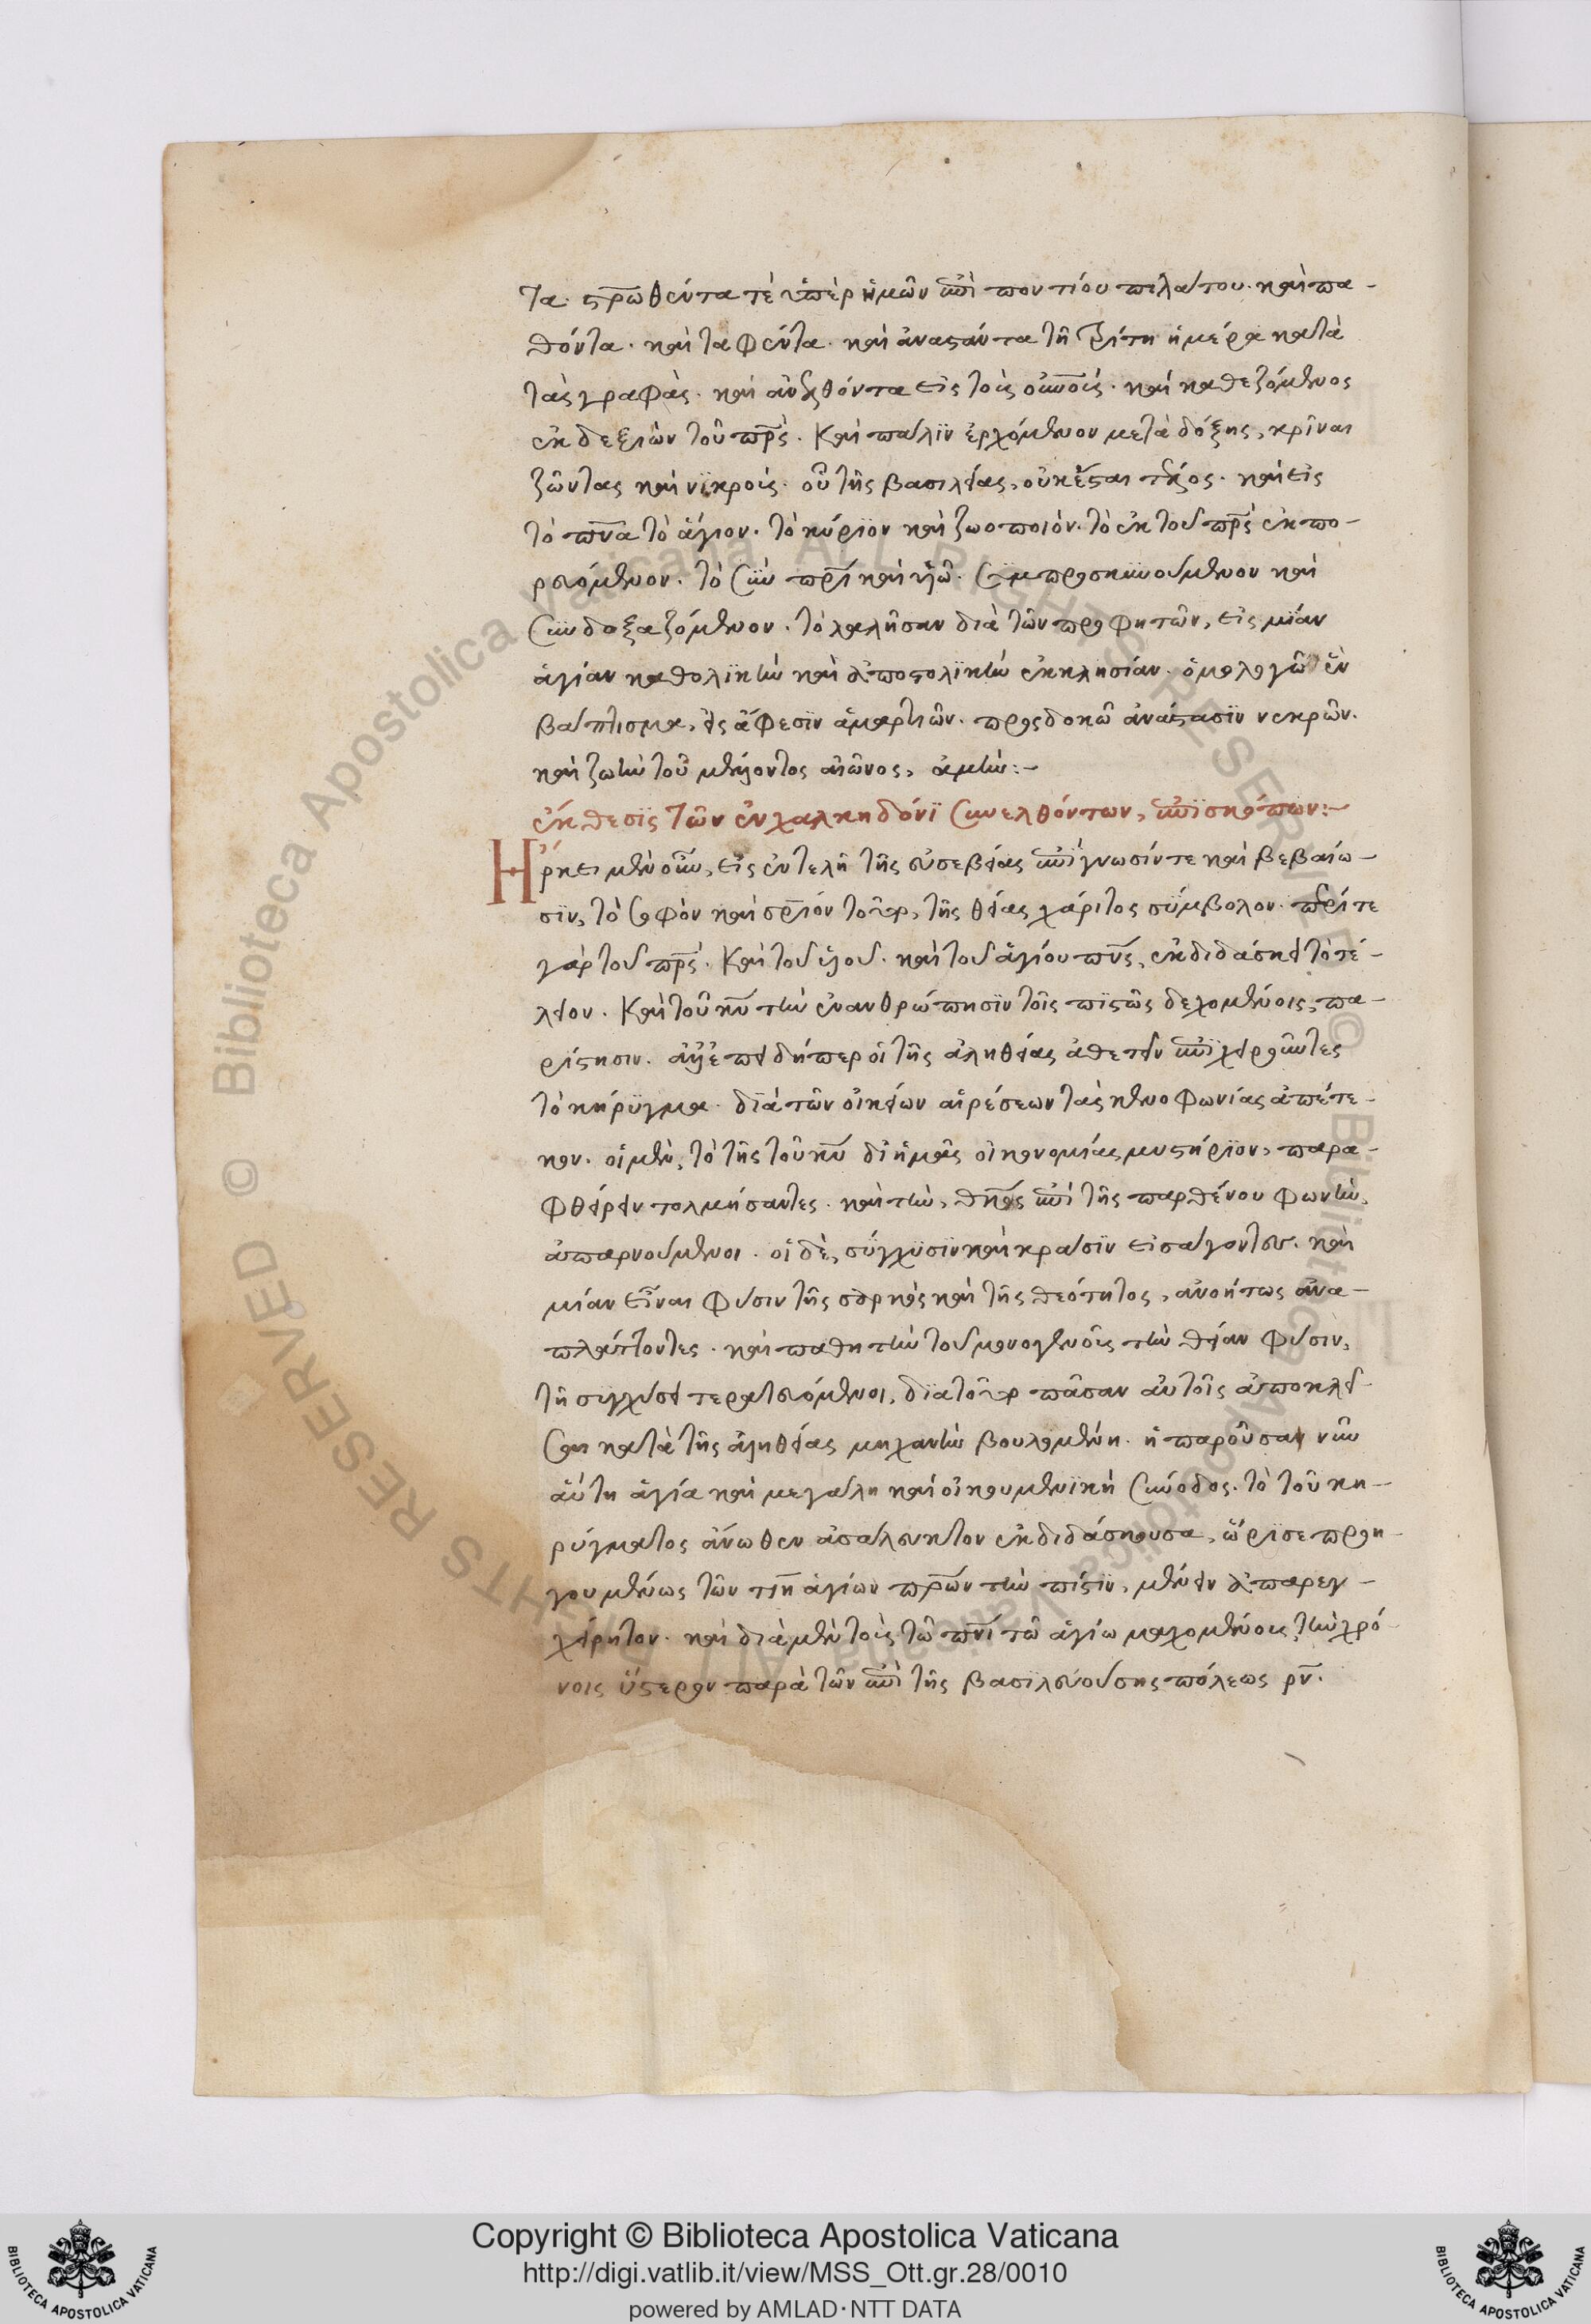 τα. στρωθέντα τὲ ὑπὲρ ἡμῶν ἐπὶ ποντίου πιλάτου. καὶ πα-
θόντα. καὶ ταφέντα. καὶ ἀναστάντα τῆ τρίτη ἡμέρα κατὰ
τὰς γραφὰς. καὶ ἀνελθόντα εἰς τοὺς οὐνοὺς. καὶ καθεζόμενος
ἐκ δεξιῶν τοῦ πρς. Καὶ πάλϊν ἐρχόμενον μετὰ δόξης, κρῖναι
ζῶντας καὶ νεκροὺς. οὗ τῆς βασιλείας, οὐκ ἔσται τέλος. καὶ εἰς
τὸ πνα τὸ ἅγιον. τὸ κύρϊον καὶ ζωοποιόν. τὸ ἐκ τοῦ πρς ἐκπο-
ρευόμενον. τὸ σὺν πρι καὶ υἱῶ. συμπροσκυνούμενον καὶ
συνδοξαζόμενον. τὸ λαλῆσαν διὰ τῶν προφητῶν, εἰς μΐαν
ἁγίαν καθολϊκὴν καὶ ἀποστολϊκὴν ἐκκλησίαν. ὁμολογῶ ἓν
βάπτισμα, εἰς ἄφεσϊν ἁμαρτιῶν. προσδοκῶ ἀνάστασϊν νεκρῶν.
καὶ ζωὴν τοῦ μέλλοντος αἰῶνος, ἀμήν:-
ἔκθεσϊς τῶν ἐν χαλκηδόνϊ συνελθόντων, ἐπϊσκόπων:-
Ἤρκει μὲν οὖν, εἰς ἐντελῆ τῆς εὐσεβείας ἐπίγνωσίν τε καὶ βεβαίω-
σϊν, τὸ σοφὸν καὶ σριον τοῦτο, τῆς θείας χάριτος σύμβολον. πρί τε
γὰρ τοῦ πρς. Καὶ τοῦ υἱοῦ. καὶ τοῦ ἁγίου πνς, ἐκδιδάσκει τὸ τέ-
λειον. Καὶ τοῦ κυ τὴν ἐνανθρώπησϊν τοῖς πϊστῶς δεχομένοις, πα-
ρίστησιν. ἀλλ' ἐπειδήπερ οἱ τῆς ἀληθείας ἀθετεῖν ἐπϊχειροῦντες
τὸ κήρϋγμα. δϊὰ τῶν οἰκείων αἱρέσεων τὰς κενοφωνίας ἀπέτε-
κον. οἱ μὲν, τὸ τῆς τοῦ κυ δι' ἡμᾶς οἰκονομίας μυστήρϊον, παρα-
φθείρειν τολμήσαντες. καὶ τὴν, θκος ἐπὶ τῆς παρθένου φωνὴν,
ἀπαρνούμενοι. οἱ δὲ, σύγχϋσϊν καὶ κράσϊν εἰσάγοντες. καὶ
μίαν εἶναι φύσιν τῆς σαρκὸς καὶ τῆς θεότητος, ἀνοήτως ἀνα-
πλάττοντες. καὶ παθητὴν τοῦ μονογενοῦς τὴν θείαν φύσϊν,
τῆ συγχύσει τερατευόμενοι, δϊατοῦτο πᾶσαν αὐτοῖς ἀποκλεῖ-
σαι κατὰ τῆς ἀληθείας μηχανὴν βουλομένη. ἡ παροῦσα νῦν
αὕτη ἁγία καὶ μεγάλη καὶ οἰκουμενϊκὴ σύνοδος. τὸ τοῦ κη-
ρύγματος ἄνωθεν ἀσάλευτον ἐκδιδάσκουσα, ὥρϊσε προη-
γουμένως τῶν τιη ἁγίων πρων τὴν πίστϊν, μένειν ἀπαρεγ-
χείρητον. καὶ διὰ μὲν τοὺς τῶ πνι τῶ ἁγίω μαχομένους, τὴν χρό-
νοις ὕστερον παρὰ τῶν ἐπὶ τῆς βασϊλευούσης πόλεως ρν.
Copyright © Biblioteca Apostolica Vaticana
http://digi.vatlib.it/view/MSS_Ott.gr.28/0010
powered by AMLAD·NTT DATA